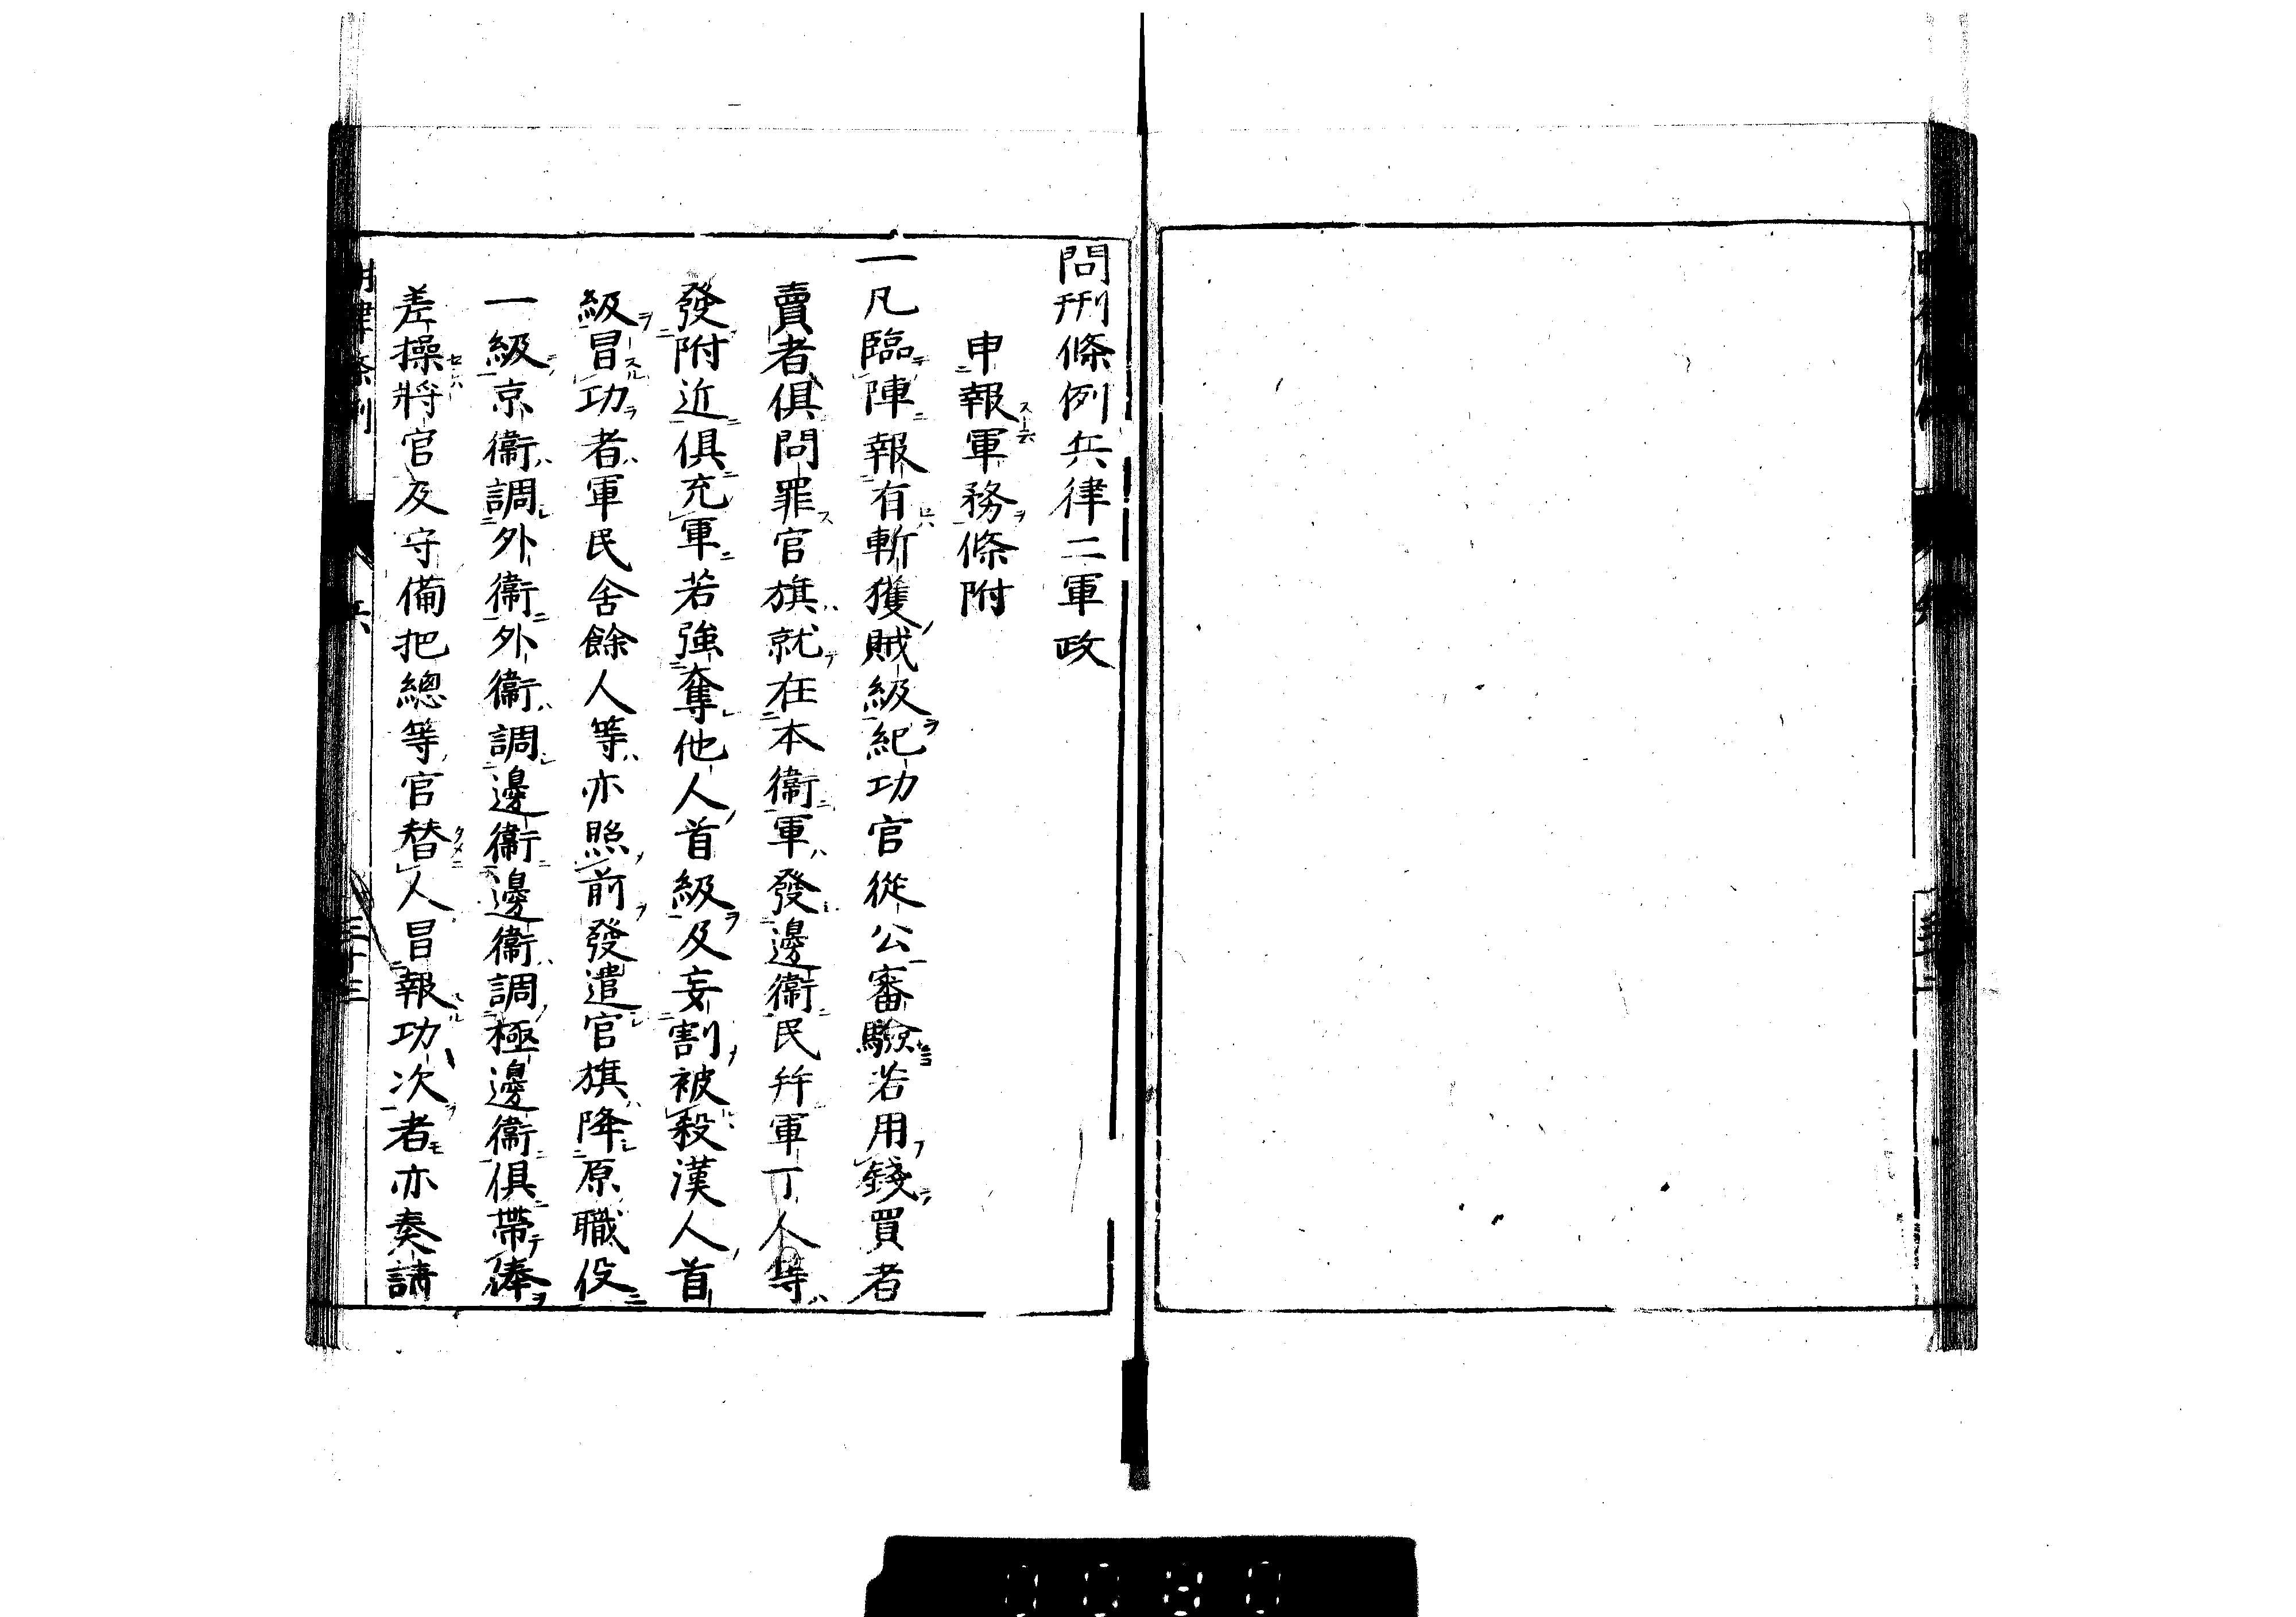 問刑條例兵律二軍政
申報軍務條附
一凡臨陣報有斬獲賊級紀功官從公審驗若用錢買者
賣者俱問罪官旗就在本衞軍發邊衞民幷軍丁人等
發附近俱充軍若強奪他人首級及妄割被殺漢人首
級冒功者軍民舍餘人等亦照前發遣官旗降原職役
一級京衞調外衞外衞調邊衞邊衞調極邊衞俱帶俸
差操將官及守備把總等官替人冒報功次者亦奏請
明律條例 兵 三十三